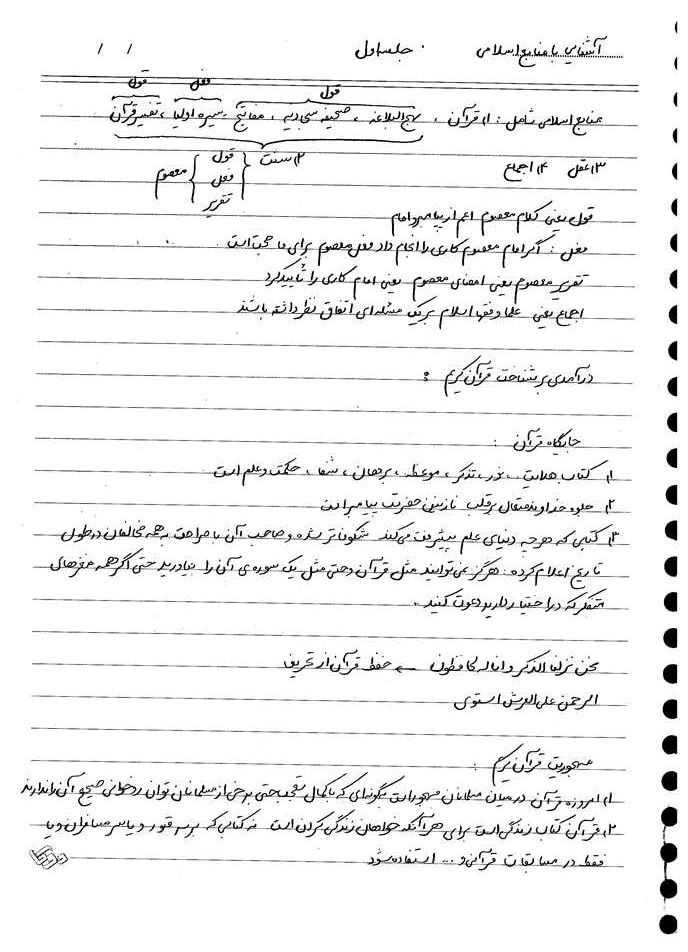 آشنایی با منابع اسلامی جلسه اول / /
قول فعل قول
منابع اسلامی شامل : ۱) قرآن ، نهج البلاغه ، صحیفه سجادیه ، مفاتیح ، سیره اولیا ، تفسیر قرآن
۲) سنت { قول فعل تقریر } معصوم
۳) عقل ۴) اجماع
قول یعنی کلام معصوم اعم از پیامبر و امام
فعل : اگر امام معصوم کاری را انجام داد فعل معصوم برای ما حجت است .
تقریر معصوم یعنی امضای معصوم یعنی امام کاری را تأیید کرد
اجماع یعنی علما و فقها اسلام بر یک مسئله ای اتفاق نظر داشته باشند
درآمدی بر شناخت قرآن کریم :
جایگاه قرآن :
۱) کتاب هدایت ، نور ، تذکر ، موعظه ، برهان ، شفا ، حکمت و علم است
۲) جلوه خداوند متعال بر قلب نازنین حضرت پیامبر است
۳) کتابی که هر چه دنیای علم پیشرفت می کند شکوفاتر شده و صاحب آن با صراحت به همه مخالفان در طول
تاریخ اعلام کرده : هرگز نمی توانید مثل قرآن و حتی مثل یک سوره ی آن را بیاورید حتی اگر همه مغزهای
متفکر که در اختیار دارید دعوت کنید .
نحن نزلنا الذکر و انا له لحافظون ← حفظ قرآن از تحریف
الرحمن علی العرش استوی
مهجوریت قرآن کریم :
۱) امروزه قرآن در میان مسلمانان مهجور است بگونه ای که با کمال تعجب حتی برخی از مسلمانان توان روخوانی صحیح آن را ندارند
۲) قرآن کتاب زندگی است برای هر آنکه خواهان زندگی کردن است نه کتابی که بر سر قبور و یا سر مسافران و یا
فقط در مسابقات قرآنی و ... استفاده شود